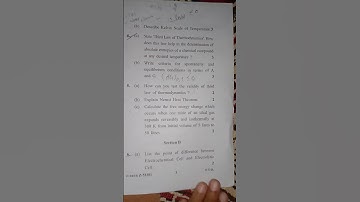 (b) Describe Kelvin Scale of Temperature. 2
(a) State "Third Law of Thermodynamics". How does this law help in the determination of absolute entropies of a chemical compound at any desired temperature?
(b) Write criteria for spontaneity and equilibrium conditions in terms of A and G.
4. (a) How can you test the validity of third law of thermodynamics? 2
(b) Explain Nernst Heat Theorem. 2
(c) Calculate the free energy change which occurs when one mole of an ideal gas expands reversibly and isothermally at 300 K from initial volume of 5 litres to 50 litres.
Section B
5. (a) List the points of difference between Electrochemical Cell and Electrolytic Cell.
3